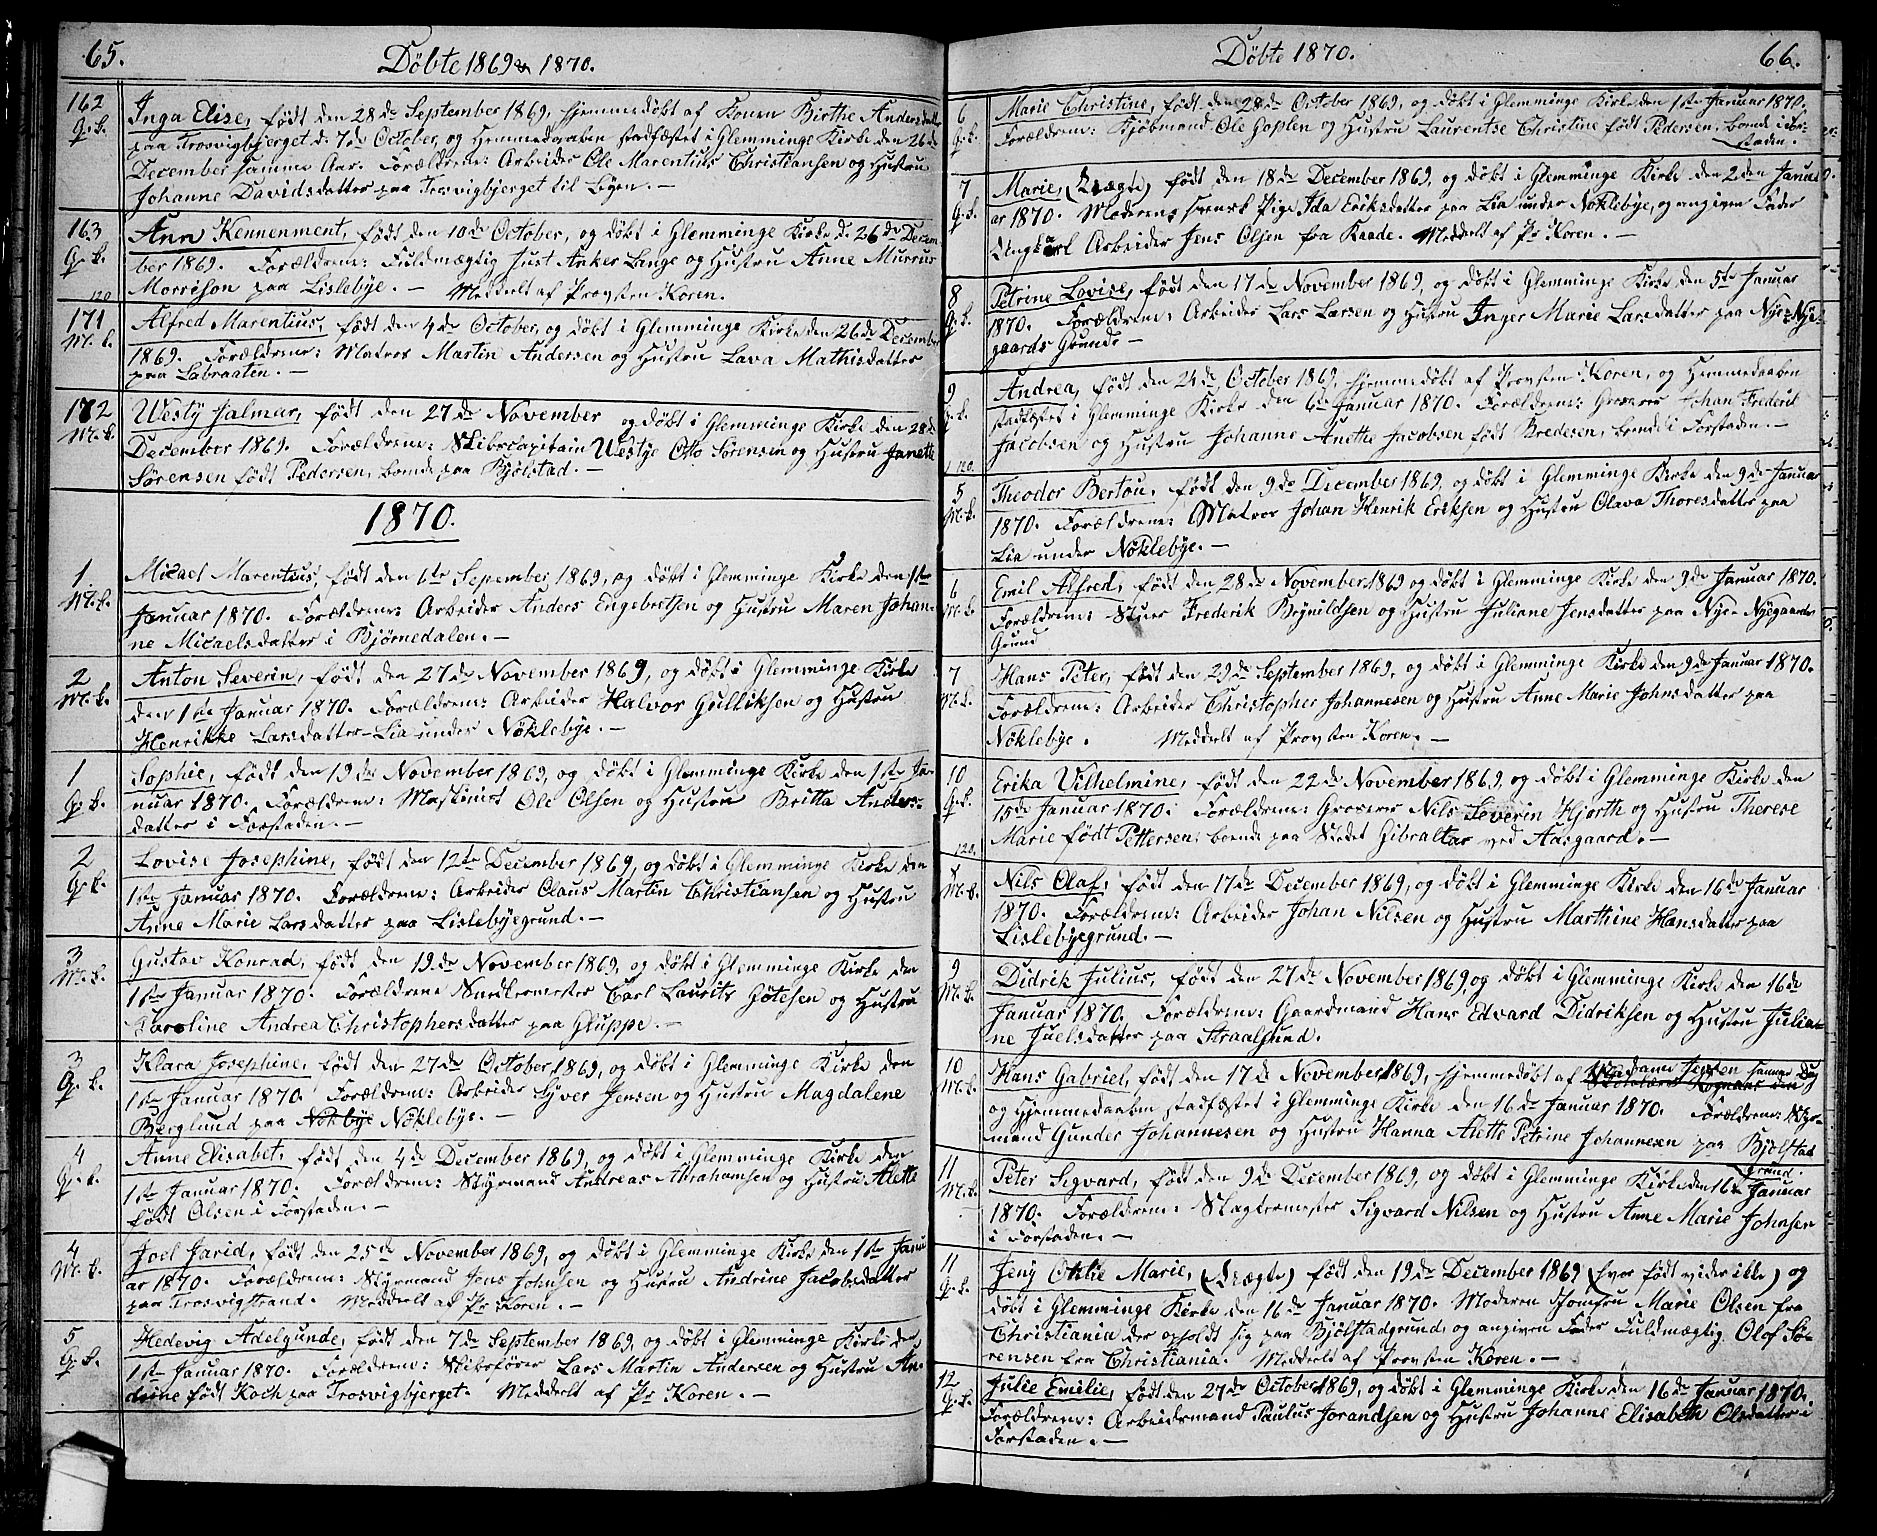 65.
Döbte 1869 & 1870.
162
G.k.
Inga Elise, født den 28de September 1869, hjemmedøbt af Konen Birthe Andersdatter
paa Trosvigbjerget d. 7de October, og Hemmedaaben stadfæstet i Glemminge Kirke den 26de
December samme Aar. Forældrene: Arbeider Ole Marentius Christiansen og Hustru
Johanne Davidsdatter paa Trosvigbjerget til Byen. —
163
G.k.
Ann Kennenment, født den 10de October, og døbt i Glemminge Kirke d. 26de Decem-
ber 1869. Forældrene: Fuldmægtig Just Anker Lange og Hustru Anne Murrus
Morrison paa Lislebye. — Meddelt af Provsten Koren.
120
171
M.k.
Alfred Marentius, født den 4de October, og døbt i Glemminge Kirke den 26de December
1869. Forældrene: Matros Martin Andersen og Hustru Lava Mathisdatter
paa Labraaten. —
172
M.k.
Westy Jalmar, født den 27de November og døbt i Glemminge Kirke den 28de
December 1869. Forældrene: Skibscapitain Westye Otto Sörensen og Hustru Janette
Sörensen født Pedersen, boende paa Bjølstad. —
1870.
1
M.k.
Micael Marentius, født den 1ste Sepember 1869, og døbt i Glemminge Kirke den 1ste
Januar 1870. Forældrene: Arbeider Anders Engebretsen og Hustru Maren Johan-
ne Micaelsdatter i Bjørnedalen. —
2
M.k.
Anton Severin, født den 27de November 1869, og døbt i Glemminge Kirke
den 1ste Januar 1870. Forældrene: Arbeider Halvor Gulliksen og Hustru
Henrikke Larsdatter – Lia under Nöklebye. —
1
G.k.
Sophie, født den 19de November 1869, og døbt i Glemminge Kirke den 1ste Ja-
nuar 1870. Forældrene: Maskinist Ole Olsen og Hustru Britta Anders-
datter i Forstaden. —
2
G.k.
Lovise Josephine, født den 12te December 1869, og døbt i Glemminge Kirke den
1ste Januar 1870. Forældrene: Arbeider Claus Martin Christiansen og Hustru
Anne Marie Larsdatter paa Lislebyegrund. —
3
M.k.
Gustav Konrad, født den 19de November 1869, og døbt i Glemminge Kirke den
1ste Januar 1870. Forældrene Snedkermester Carl Laurits Götesen og Hustru
Karoline Andrea Christophersdatter paa Gluppe. —
3
G.k.
Klara Josephine, født den 27de October 1869, og døbt i Glemminge Kirke den
1ste Januar 1870. Forældrene: Arbeider Syver Jensen og Hustru Magdalene
Berglund paa Nökbye Nöklebye. —
4
G.k.
Anne Elisabet, født den 4de December 1869, og døbt i Glemminge Kirke den
1ste Januar 1870. Forældrene: Styrmand Andreas Abrahamsen og Hustru Alette
født Olsen i Forstaden. —
4
M.k.
Joel Jarid, født den 25de November 1869, og døbt i Glemminge Kirke den 1ste Janu-
ar 1870. Forældrene: Styrmand Jens Johnsen og Hustru Andrine Jacobsdatter
paa Trosvigstrand. Meddelt af Pr Koren. —
5
G.k.
Hedevig Adelgunde, født den 7de September 1869, og døbt i Glemminge Kirke den
1ste Januar 1870. Forældrene: Skibsfører Lars Martin Andersen og Hustru An-
drine født Koch paa Trosvigbjerget. Meddelt af Pr Koren. —
Döbte 1870.
66.
6
G.k.
Marie Christine, født den 28de October 1869, og døbt i Glemminge Kirke den 1ste Januar 1870.
Forældrene: Kjöbmand Ole Goplen og Hustru Laurentse Christine født Pedersen, boende i For-
staden.
7
G.k.
Marie, (Uægte) født den 18de December 1869, og døbt i Glemminge Kirke den 2den Janu-
ar 1870. Moderen svensk Pige Ida Eriksdatter paa Lia under Nöklebye, og angiven Fader
Ungkarl Arbeider Jens Olsen fra Raade. Meddelt af Pr Koren. —
8
G.k.
Petrine Lovise, født den 17de November 1869, og døbt i Glemminge Kirke den 5te Januar
1870. Forældrene: Arbeider Lars Larsen og Hustru Inger Marie Larsdatter paa Nye-Nye-
gaards Grund. —
9
G.k.
Andrea, født den 24de October 1869, hjemmedøbt af Provsten Koren, og Hemmedaaben
stadfæstet i Glemminge Kirke den 6te Januar 1870. Forældrene: Graverer Johan Frederik
Jacobsen og Hustru Johanne Anethe Jacobsen født Bredesen, boende i Forstaden. —
120.
5
M.k.
Theodor Bertou, født den 9de December 1869, og døbt i Glemminge Kirke den 9de Januar
1870. Forældrene: Matros Johan Henrik Eriksen og Hustru Olava Thoresdatter paa
Lia under Nöklebye. —
6
M.k.
Emil Alfred, født den 28de November 1869 og døbt i Glemminge Kirke den 9de Januar 1870.
Forældrene: Stuer Frederik Brynildsen og Hustru Juliane Jensdatter paa Nye-Nyegaards
Grund
7
M.k.
Hans Peter, født den 29de September 1869, og døbt i Glemminge Kirke den 9de Januar 1870.
Forældrene: Arbeider Christopher Johannesen og Hustru Anne Marie Johnsdatter paa
Nöklebye. Meddelt af Provsten Koren. —
10
G.k.
Erika Vilhelmine, født den 22de November 1869, og døbt i Glemminge Kirke den
15de Januar 1870. Forældrene: Groserer Nils Severin Hjorth og Hustru Therese
Marie født Pettersen, boende paa Stedet Gibraltar ved Aasgaard. —
120.
8
M.k.
Nils Olaf, født den 17de December 1869, og døbt i Glemminge Kirke den 16de Januar
1870. Forældrene: Arbeider Johan Nilsen og Hustru Marthine Hansdatter paa
Lislebyegrund. —
9
M.k.
Didrik Julius, født den 27de November 1869, og døbt i Glemminge Kirke den 16de
Januar 1870. Forældrene: Gaardmand Hans Edvard Didriksen og Hustru Julia-
ne Juelsdatter paa Straalsund.
10
M.k.
Hans Gabriel, født den 17de November 1869, hjemmedøbt af Madame Jensen samme Dag
og Hjemmedaaben stadfæstet i Glemminge Kirke den 16de Januar 1870. Forældrene: Styr-
mand Gunder Johannesen og Hustru Hanna Alette Petrine Johannesen paa Bjølstad
Grund.
11
M.k.
Peter Sigvard, født den 9de December 1869, og døbt i Glemminge Kirke den 16de Januar
1870. Forældrene: Slagtermester Sigvard Nilsen og Hustru Anne Marie Johnsen
i Forstaden. —
11
G.k.
Jeny Otilie Marie, (Uægte) født den 19de December 1869 (hvor født vides ikke) og
døbt i Glemminge Kirke den 16de Januar 1870. Moderen Jomfru Marie Olsen fra
Christiania der opholdt sig paa Bjølstadgrund, og angiven Fader Fuldmægtig Olof Sö-
rensen fra Christiania. Meddelt af Provsten Koren. —
12
G.k.
Julie Emilie, født den 27de October 1869, og døbt i Glemminge Kirke den 16de Januar 1870.
Forældrene: Arbeidsmand Paulus Jorandsen og Hustru Johanne Elisabeth Olsdatter i
Forstaden. —